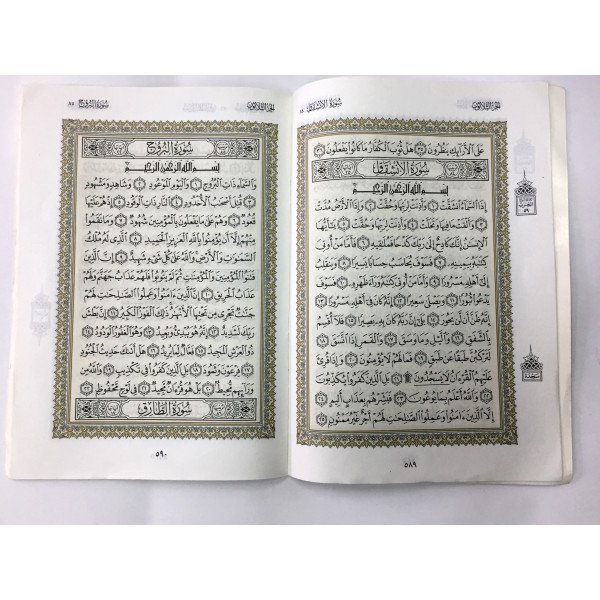 الجزء الثلاثون سُورَةُ الانشِقَاقِ ٨٤
عَلَى ٱلْأَرَآئِكِ يَنظُرُونَ ٣٥ هَلْ ثُوِّبَ ٱلْكُفَّارُ مَا كَانُوا۟ يَفْعَلُونَ ٣٦
سُورَةُ الانشِقَاقِ
بِسْمِ ٱللَّهِ ٱلرَّحْمَٰنِ ٱلرَّحِيمِ
إِذَا ٱلسَّمَآءُ ٱنشَقَّتْ ١ وَأَذِنَتْ لِرَبِّهَا وَحُقَّتْ ٢ وَإِذَا ٱلْأَرْضُ مُدَّتْ ٣
وَأَلْقَتْ مَا فِيهَا وَتَخَلَّتْ ٤ وَأَذِنَتْ لِرَبِّهَا وَحُقَّتْ ٥ يَٰٓأَيُّهَا
ٱلْإِنسَٰنُ إِنَّكَ كَادِحٌ إِلَىٰ رَبِّكَ كَدْحًا فَمُلَٰقِيهِ ٦ فَأَمَّا مَنْ أُوتِىَ
كِتَٰبَهُۥ بِيَمِينِهِۦ ٧ فَسَوْفَ يُحَاسَبُ حِسَابًا يَسِيرًا ٨ وَيَنقَلِبُ
إِلَىٰٓ أَهْلِهِۦ مَسْرُورًا ٩ وَأَمَّا مَنْ أُوتِىَ كِتَٰبَهُۥ وَرَآءَ ظَهْرِهِۦ ١٠ فَسَوْفَ
يَدْعُوا۟ ثُبُورًا ١١ وَيَصْلَىٰ سَعِيرًا ١٢ إِنَّهُۥ كَانَ فِىٓ أَهْلِهِۦ مَسْرُورًا ١٣
إِنَّهُۥ ظَنَّ أَن لَّن يَحُورَ ١٤ بَلَىٰٓ إِنَّ رَبَّهُۥ كَانَ بِهِۦ بَصِيرًا ١٥ فَلَآ أُقْسِمُ
بِٱلشَّفَقِ ١٦ وَٱلَّيْلِ وَمَا وَسَقَ ١٧ وَٱلْقَمَرِ إِذَا ٱتَّسَقَ ١٨
لَتَرْكَبُنَّ طَبَقًا عَن طَبَقٍ ١٩ فَمَا لَهُمْ لَا يُؤْمِنُونَ ٢٠ وَإِذَا قُرِئَ
عَلَيْهِمُ ٱلْقُرْءَانُ لَا يَسْجُدُونَ ۩ ٢١ بَلِ ٱلَّذِينَ كَفَرُوا۟ يُكَذِّبُونَ
٢٢ وَٱللَّهُ أَعْلَمُ بِمَا يُوعُونَ ٢٣ فَبَشِّرْهُم بِعَذَابٍ أَلِيمٍ ٢٤
إِلَّا ٱلَّذِينَ ءَامَنُوا۟ وَعَمِلُوا۟ ٱلصَّٰلِحَٰتِ لَهُمْ أَجْرٌ غَيْرُ مَمْنُونٍۭ ٢٥
سجدة
٥٨٩
الجزء الثلاثون سُورَةُ البُرُوجِ ٨٥
سُورَةُ البُرُوجِ
بِسْمِ ٱللَّهِ ٱلرَّحْمَٰنِ ٱلرَّحِيمِ
وَٱلسَّمَآءِ ذَاتِ ٱلْبُرُوجِ ١ وَٱلْيَوْمِ ٱلْمَوْعُودِ ٢ وَشَاهِدٍ وَمَشْهُودٍ
٣ قُتِلَ أَصْحَٰبُ ٱلْأُخْدُودِ ٤ ٱلنَّارِ ذَاتِ ٱلْوَقُودِ ٥ إِذْ هُمْ عَلَيْهَا
قُعُودٌ ٦ وَهُمْ عَلَىٰ مَا يَفْعَلُونَ بِٱلْمُؤْمِنِينَ شُهُودٌ ٧ وَمَا نَقَمُوا۟
مِنْهُمْ إِلَّآ أَن يُؤْمِنُوا۟ بِٱللَّهِ ٱلْعَزِيزِ ٱلْحَمِيدِ ٨ ٱلَّذِى لَهُۥ مُلْكُ
ٱلسَّمَٰوَٰتِ وَٱلْأَرْضِ وَٱللَّهُ عَلَىٰ كُلِّ شَىْءٍ شَهِيدٌ ٩ إِنَّ ٱلَّذِينَ
فَتَنُوا۟ ٱلْمُؤْمِنِينَ وَٱلْمُؤْمِنَٰتِ ثُمَّ لَمْ يَتُوبُوا۟ فَلَهُمْ عَذَابُ جَهَنَّمَ وَلَهُمْ
عَذَابُ ٱلْحَرِيقِ ١٠ إِنَّ ٱلَّذِينَ ءَامَنُوا۟ وَعَمِلُوا۟ ٱلصَّٰلِحَٰتِ لَهُمْ
جَنَّٰتٌ تَجْرِى مِن تَحْتِهَا ٱلْأَنْهَٰرُ ذَٰلِكَ ٱلْفَوْزُ ٱلْكَبِيرُ ١١ إِنَّ بَطْشَ
رَبِّكَ لَشَدِيدٌ ١٢ إِنَّهُۥ هُوَ يُبْدِئُ وَيُعِيدُ ١٣ وَهُوَ ٱلْغَفُورُ ٱلْوَدُودُ ١٤
ذُو ٱلْعَرْشِ ٱلْمَجِيدُ ١٥ فَعَّالٌ لِّمَا يُرِيدُ ١٦ هَلْ أَتَىٰكَ حَدِيثُ ٱلْجُنُودِ
١٧ فِرْعَوْنَ وَثَمُودَ ١٨ بَلِ ٱلَّذِينَ كَفَرُوا۟ فِى تَكْذِيبٍ ١٩ وَٱللَّهُ مِن
وَرَآئِهِم مُّحِيطٌۢ ٢٠ بَلْ هُوَ قُرْءَانٌ مَّجِيدٌ ٢١ فِى لَوْحٍ مَّحْفُوظٍۭ ٢٢
سُورَةُ الطَّارِقِ
٥٩٠